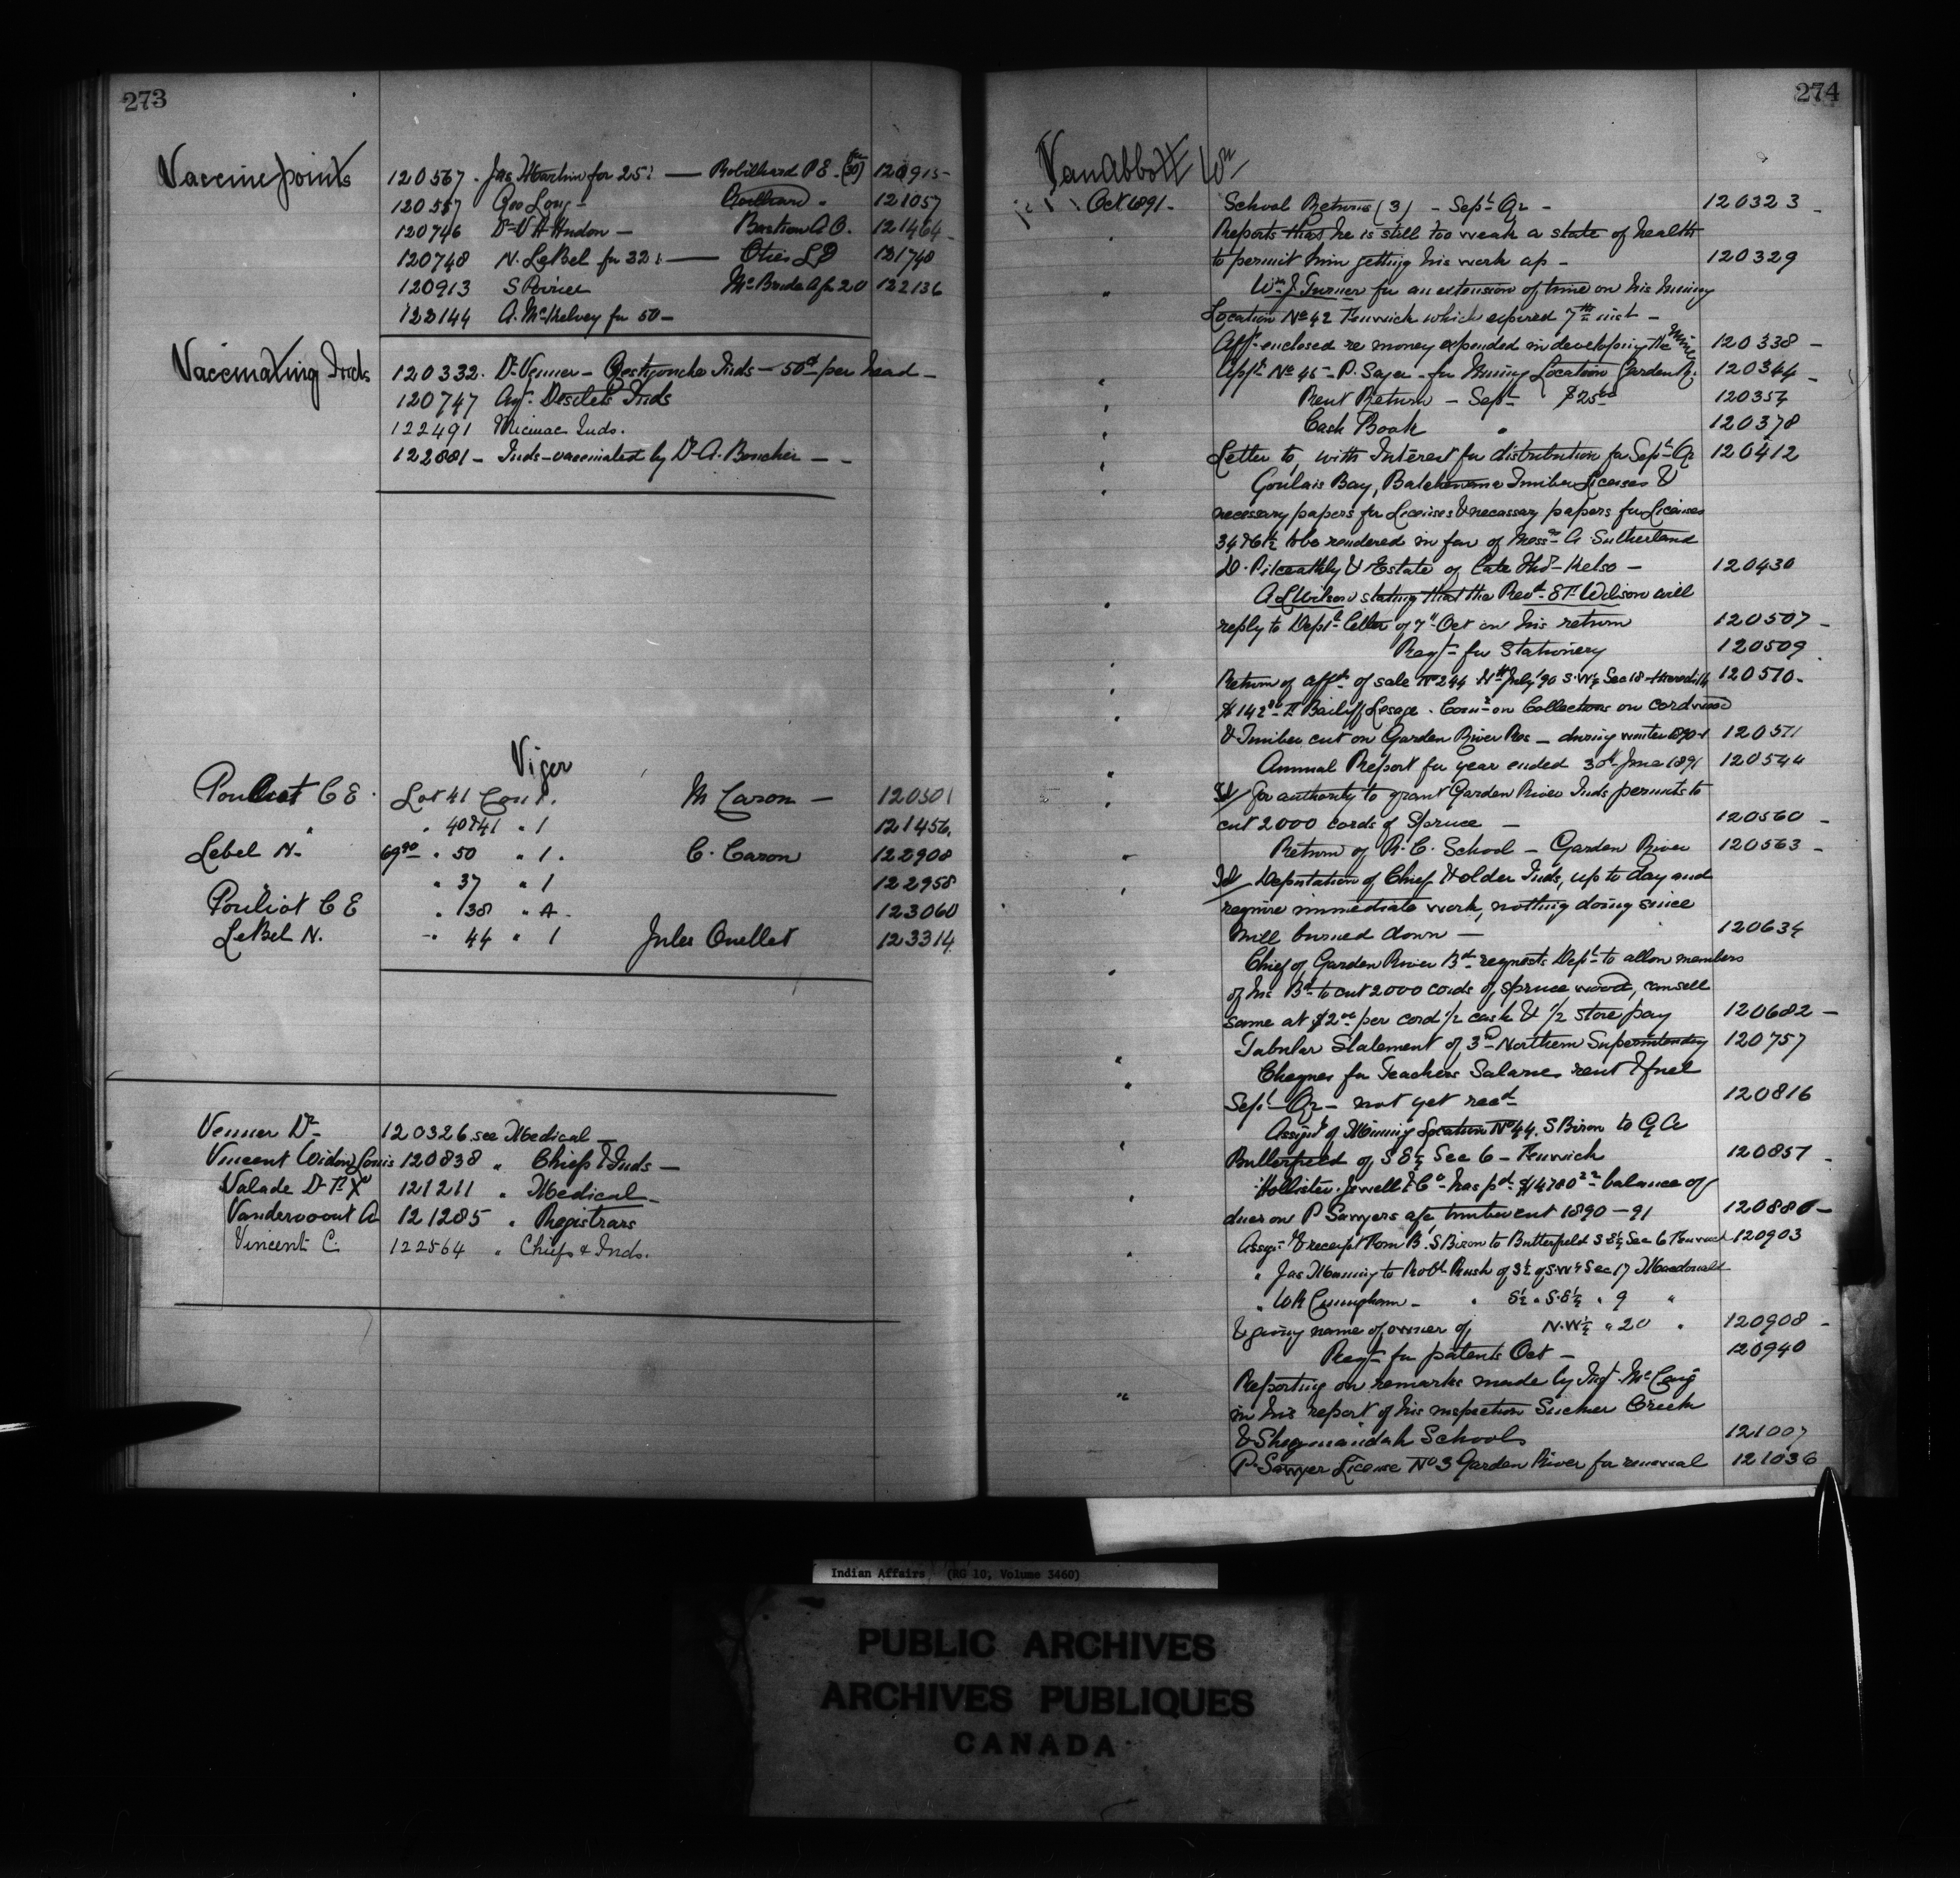 273
Vaccine points
120567 . Jas Martin for 25 : — Robillard P E . (for 30) 120915
120557 Geo Long — Robillard " 121057
120746 Dr V A Hudon — Bastien A O. 121464
120748 N. LeBel for 32 : — Otis L D 121748
120913 S Poirier Mc Bride A for 20 122136
122144 A. McKelvey for 50 —
Vaccinating Inds
120332. Dr Venner — Restigouche Inds — 50cts per head —
120747 Agt. Desilets Inds
122491 Micmac Inds.
122881 — Inds — vaccinated by Dr A. Boucher — —
Viger
Pouliot C E . Lot 41 Con 1. M Caron — 120301
" " 40 & 41 " 1 121456.
Lebel N. 69.90 " 50 " 1 . C. Caron 122908
" 37 " 1 122958
Pouliot C E " 138 " A . 123060
LeBel N. " 44 " 1 Jules Ouellet 123314
Venner Dr 120326 see Medical —
Vincent Widow Louis 120838 " Chiefs & Inds —
Valade Dr F X 121211 " Medical —
Vandervoort A 121285 " Registrars
Vincent C. 122564 " Chiefs & Inds.
274
Van Abbott Wm
Oct 1891 - School Returns (3) — Sept Qr — 120323
Reports that he is still too weak a state of health
to permit him getting his work up — 120329
Wm J. Turner for an extension of time on his Mining
Location No 42 Fenwick which expired 7th inst —
Afft enclosed re money expended in developing the Mine 120338 —
Appn No 45 — P. Sayer — for Mining Location Garden R. 120344
Rent Return — Sept $25.00 120354
Cash Book " 120378
Letter to, with Interest for distribution for Sept Qr 120412
Goulais Bay, Batchewana Timber Licenses &
necessary papers for Licenses & necessary papers for Licenses
to be rendered in fav of Messrs A Sutherland
D. Pitceathly & Estate of Late Thos Kelso — 120430
A L Wilson stating that the Revd E F Wilson will
reply to Dept's letter of 7th Oct on his return 120507
Reqn for Stationery 120509
Return of affdt of sale No 244 July '90 S.W¼ Sec 18 Meredith 120510 -
$142 Bailiff Lesage . Comn on Collections on cordwood
& Timber cut on Garden River Res — during winter 1890-1 120511
Annual Report for year ended 30th June 1891 120544
for authority to grant Garden River Inds permits to
cut 2000 cords of Spruce — 120560 —
Return of R. C. School — Garden River 120563 —
Deputation of Chief & older Inds, up to day and
require immediate work, nothing doing since
mill burned down — 120634
Chief of Garden River Bd requests Dept to allow members
of his Bd to cut 2000 cords of spruce wood, can sell
same at $2.00 per cord 1/2 cash & 1/2 store pay 120682 —
Tabular Statement of 3rd Northern Superintendency 120757
Cheques for Teachers Salaries rent & fuel
Sept Qr — not yet recd 120816
Assignt of Mining Location No 44. S Biron to G A
Butterfield of S E¼ Sec 6 — Fenwick 120857
Hollister Jewell & Co has pd $4780 balance of
dues on P Sawyers a/c timber cut 1890 — 91 120880 —
Assgt & receipt from B. S Biron to Butterfield S E¼ Sec 6 Fenwick 120903
" Jas Manning to Robt Rush of S½ of S.W¼ Sec 17 Macdonald
" W H Cuningham — " S½ " S.E¼ " 9 "
& giving name of owner of N.W¼ " 20 " 120908 -
Reqn for patents Oct — 120940
Reporting on remarks made by Insp. McCaig
in his report of his inspection Sucker Creek
& Sheguiandah Schools 121007
P. Sawyer License No 3 Garden River for renewal 121036
Indian Affairs (RG 10, Volume 3460)
PUBLIC ARCHIVES
ARCHIVES PUBLIQUES
CANADA